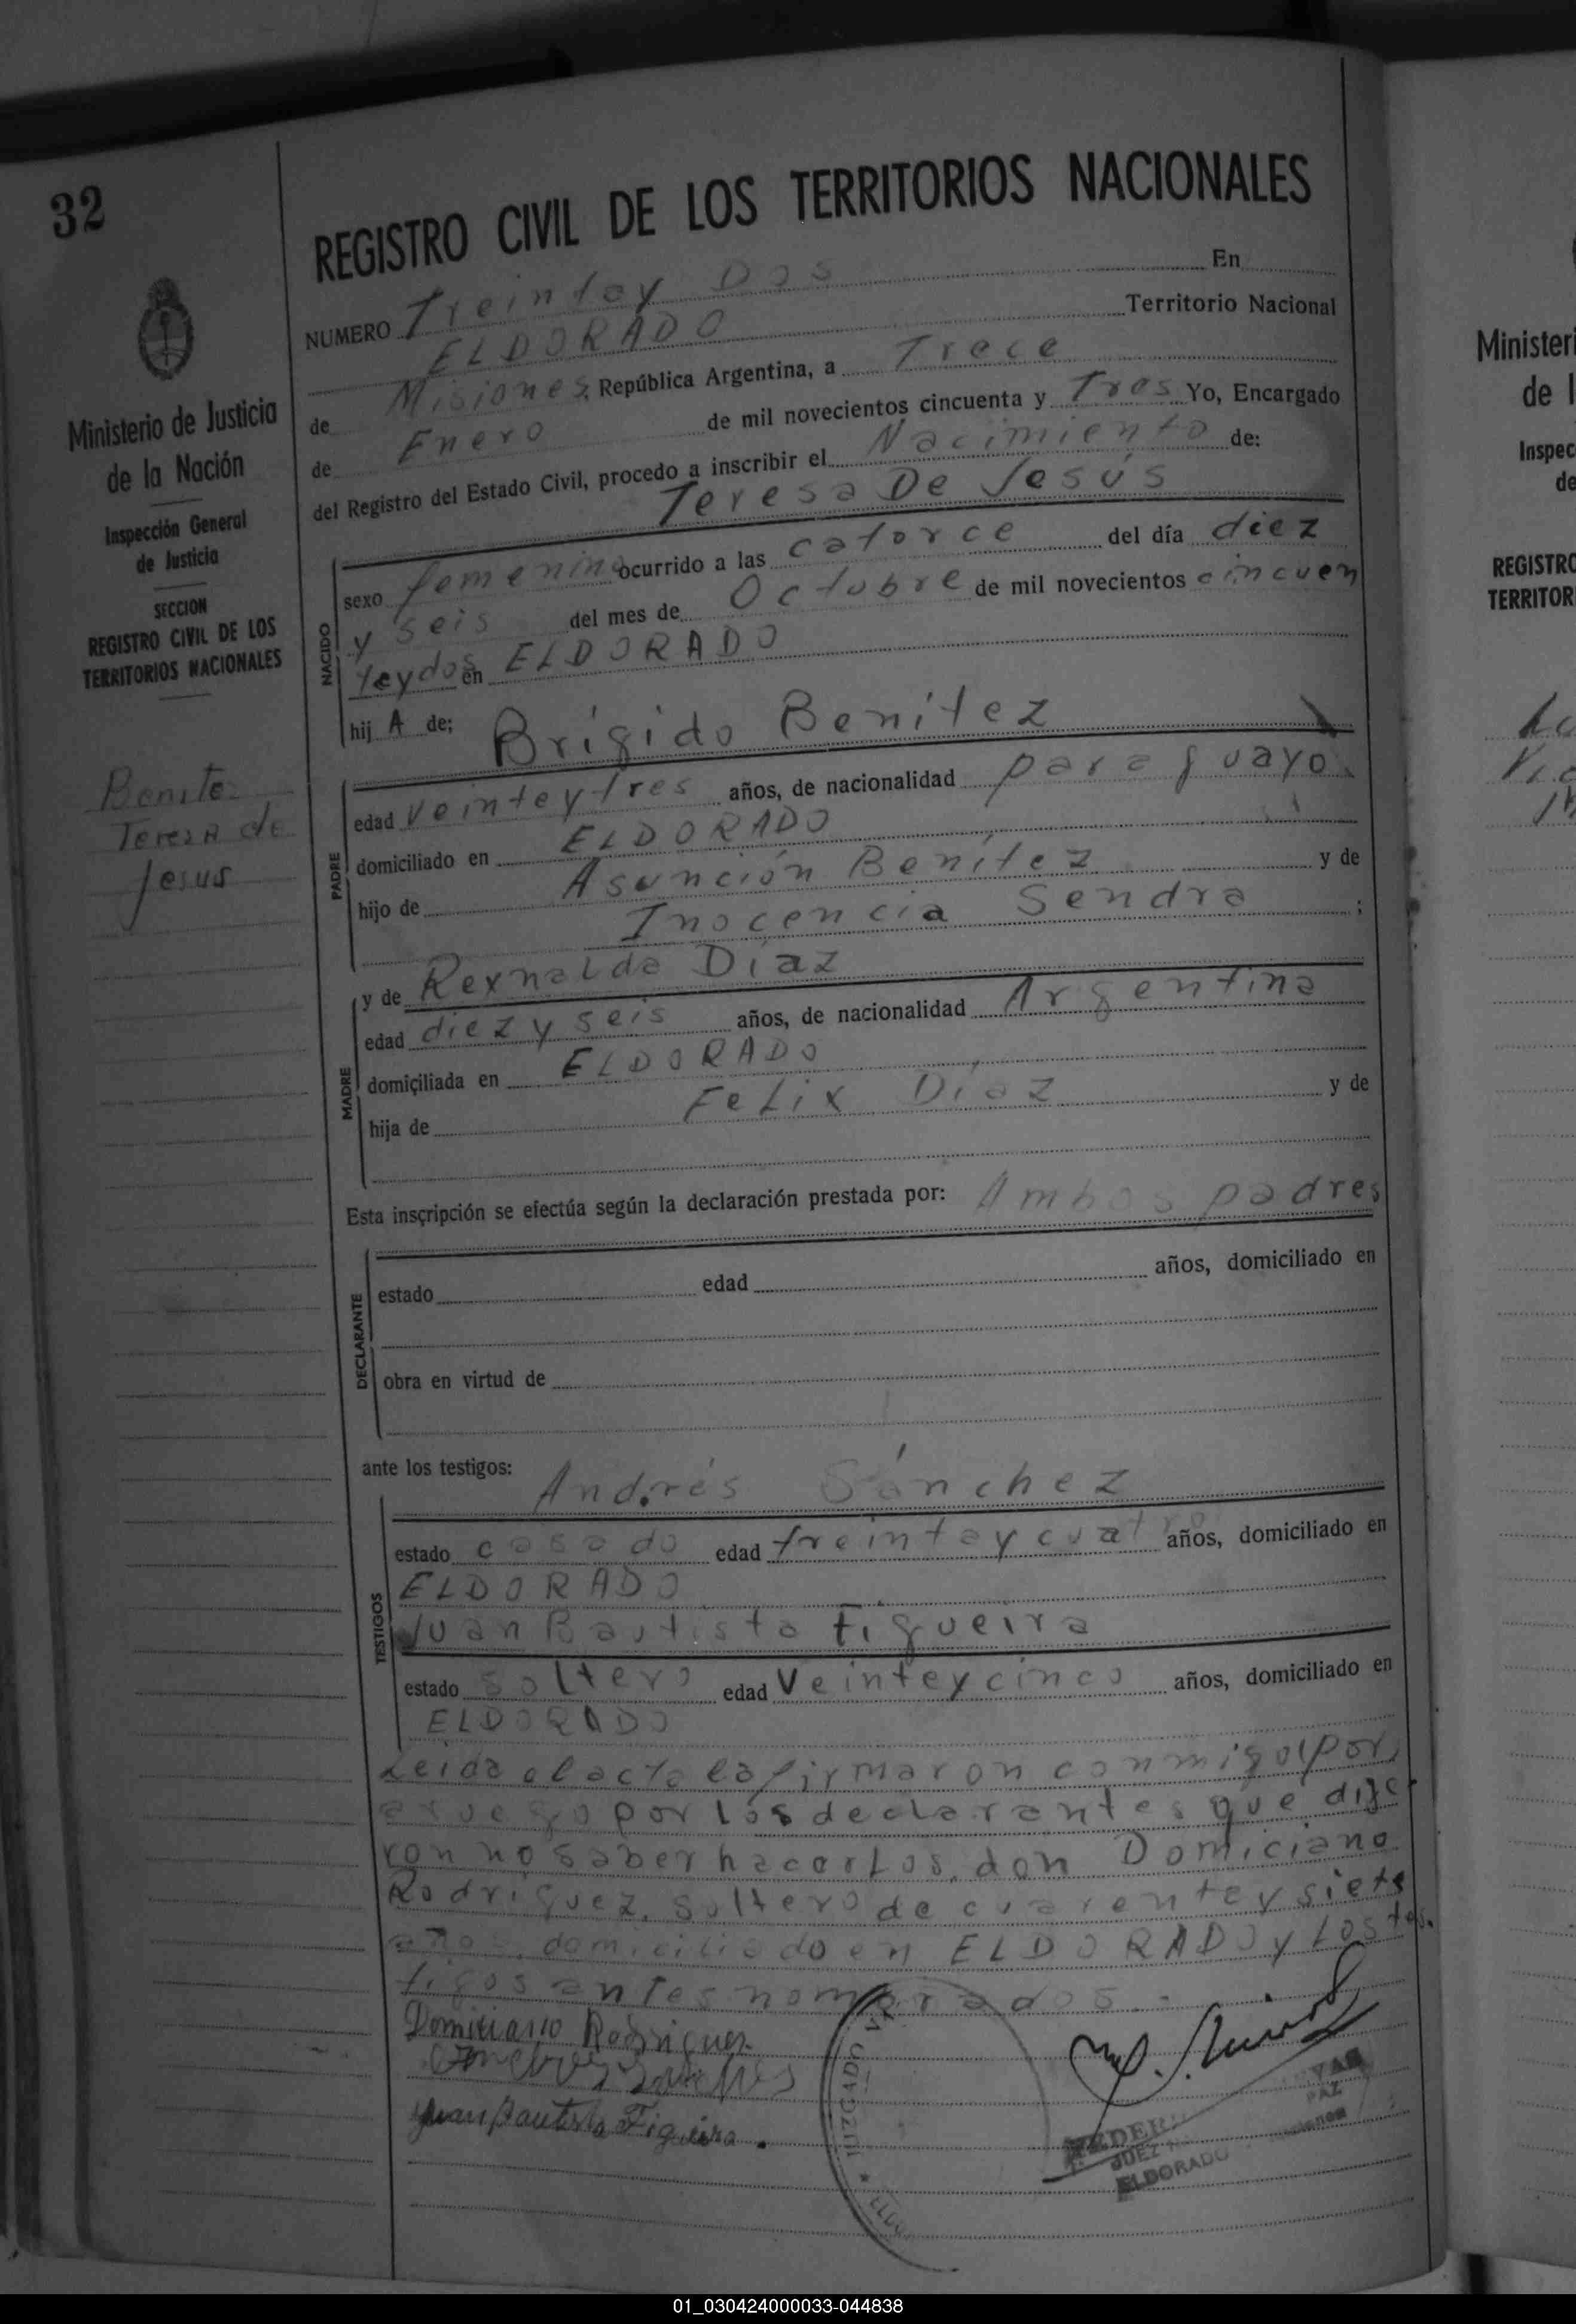 32
Ministerio de Justicia
de la Nación
Inspección General
de Justicia
SECCION
REGISTRO CIVIL DE LOS
TERRITORIOS NACIONALES
Benitez
Teresa de
Jesus
REGISTRO CIVIL DE LOS TERRITORIOS NACIONALES
NUMERO Treintay Dos En
ELDORADO Territorio Nacional
de Misiones, República Argentina, a Trece
de Enero de mil novecientos cincuenta y Tres Yo, Encargado
del Registro del Estado Civil, procedo a inscribir el Nacimiento de:
Teresa De Jesús
NACIDO
sexo femenino ocurrido a las catorce del día diez
y seis del mes de Octubre de mil novecientos cincuen
taydos en ELDORADO
hij A de; Brígido Benítez
PADRE
edad veinteytres años, de nacionalidad paraguayo
domiciliado en ELDORADO
hijo de Asunción Benítez y de
Inocencia Sendra ;
MADRE
y de Reynalda Díaz
edad diez y seis años, de nacionalidad Argentina
domiciliada en ELDORADO
hija de Felix Díaz y de
Esta inscripción se efectúa según la declaración prestada por: Ambos padres
DECLARANTE
estado edad años, domiciliado en
obra en virtud de
ante los testigos: Andrés Sánchez
TESTIGOS
estado casado edad treintaycuatro años, domiciliado en
ELDORADO
Juan Bautista Figueira
estado soltero edad Veinteycinco años, domiciliado en
ELDORADO
Leida el acta la firmaron conmigo por
a ruego por los declarantes que dije
ron no saber hacerlos, don Domiciano
Rodríguez, soltero de cuarentaysiete
años, domiciliado en ELDORADO y Los tes.
tigos antes nombrados.-
Domiciano Rodriguez
Juan Bautista Figueira.
JUZGADO
JUEZ
PAZ
ELDORADO
Misiones
Minister
de l
Inspec
de
REGISTRO
TERRITOR
01_030424000033-044838